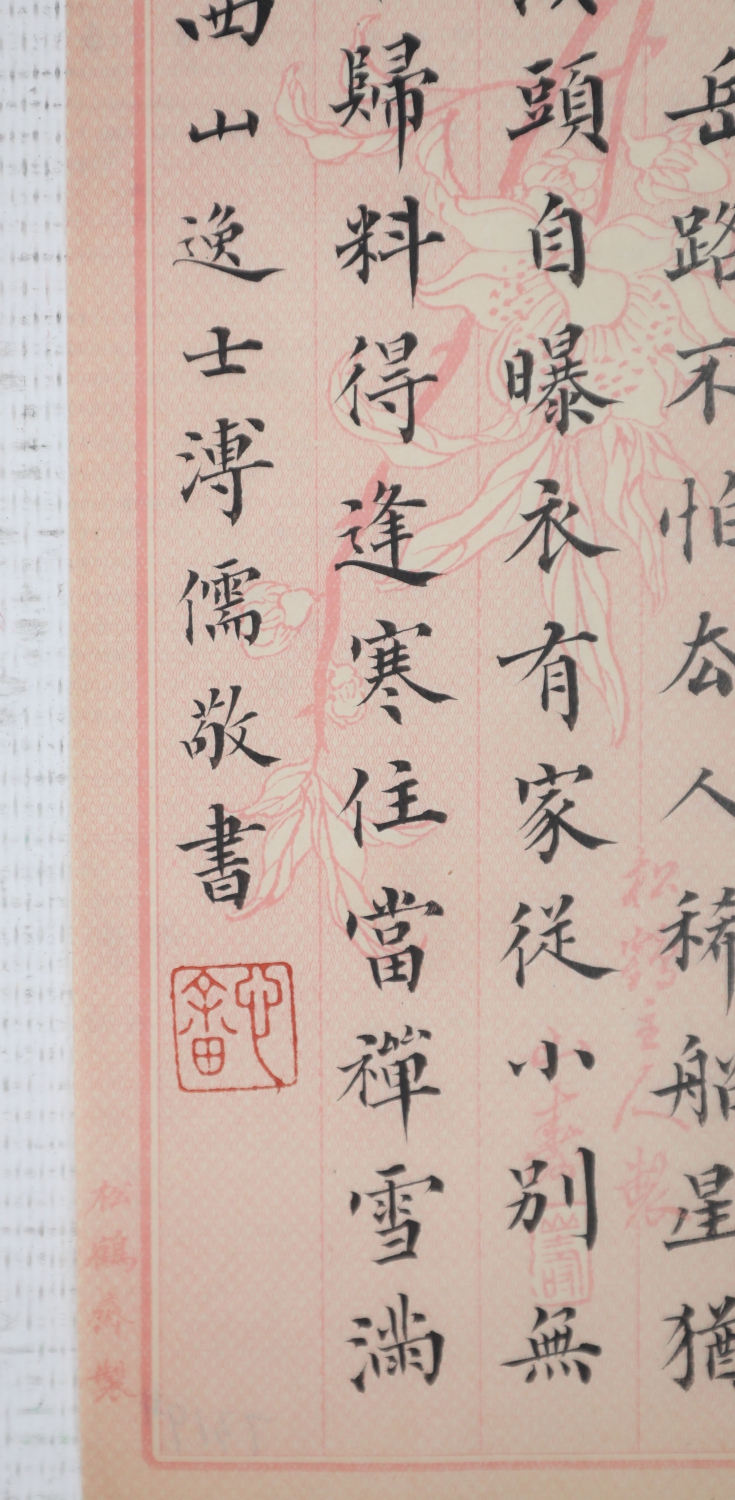 岳路不怕去人稀船星猶
頭自曝衣有家從小別無
歸料得逢寒住當禪雪滿
西山逸士溥儒敬書
松鶴主人製
松鶴齋製